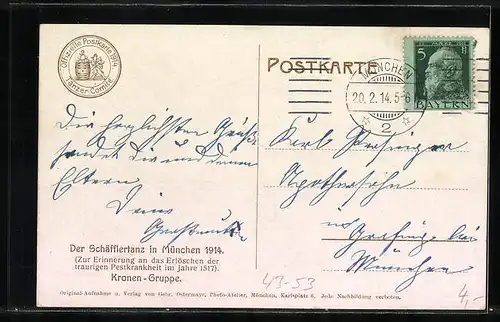 Offizielle Postkarte 1914
Tänzer-Comité
POSTKARTE
MÜNCHEN
20. 2. 14. 5-6
2
5
BAYERN
Die herzlichsten Grüße
sendet Dir und deinen
Eltern
Deine
Karl
in
bei
München
Der Schäfflertanz in München 1914.
(Zur Erinnerung an das Erlöschen der
traurigen Pestkrankheit im Jahre 1517).
Kronen-Gruppe.
Original-Aufnahme u. Verlag von Gebr. Ostermayr, Photo-Atelier, München, Karlsplatz 6. Jede Nachbildung verboten.
43-53
4,-